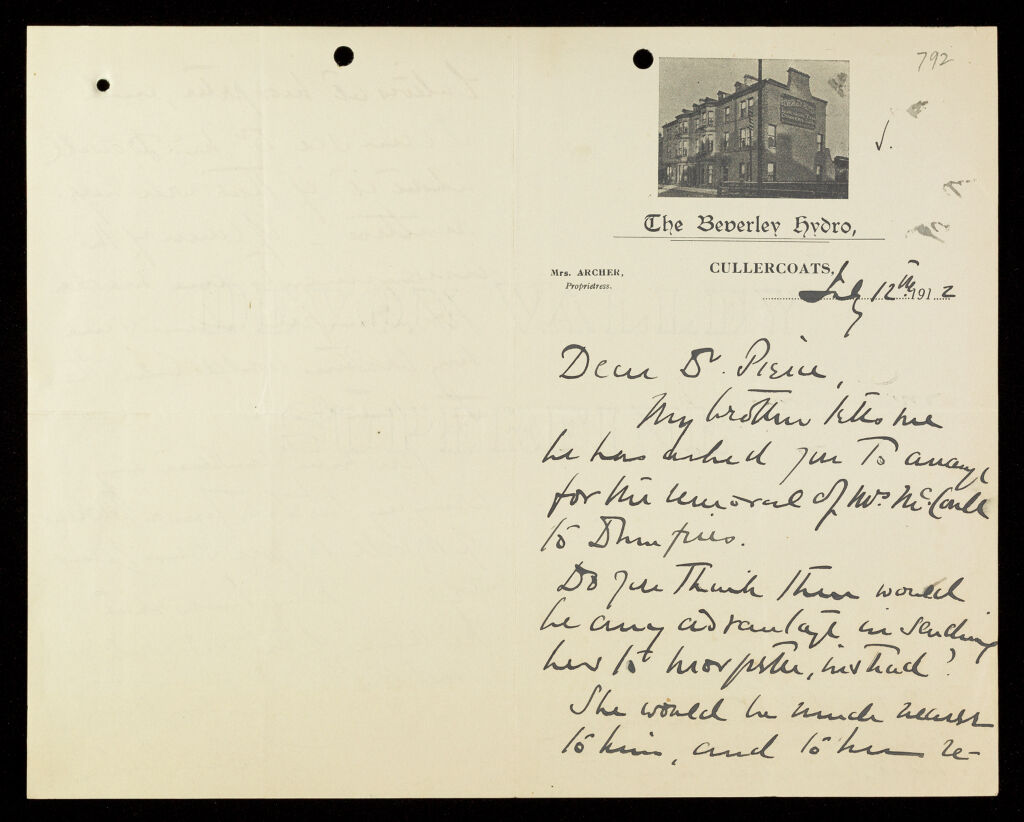 792
The Beverley Hydro,
Mrs. ARCHER,
Proprietress.
CULLERCOATS,
July 12th 1912
Dear Dr. Pierce,
My brother tells me
he has asked you to arrange
for the removal of Mrs McConll
to Dumfries.
Do you think there would
be any advantage in sending
her to Morpeth, instead?
She would be much nearer
to him, and to her re-